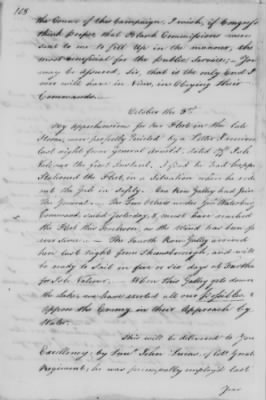 158
the Course of this Campaign. I wish, if Congress
think proper that Blank Commissions were
sent to me to fill up in the manner, the
most beneficial for the public Service; – You
may be assured, Sir, that is the only End I
ever will have in View, in Obeying their
Commands.
October the 3d.
My apprehensions for our Fleet in the late
Storm, were perfectly quieted by a Letter I received
last night from General Arnold, dated Isle
the first Instant. I find he had happily
Stationed the Fleet, in a Situation where he rode
out the Gale in Safety. One Row Galley had join'd
the General. – The Two Others under Genl Waterbury
Command, sailed yesterday, & must have reached
the Fleet this forenoon, as the Wind has been fair
ever since. – The fourth Row Galley arrived
here last night from Skenesborough, and will
be ready to Sail in five or six days at farthest
for Isle Valcour. – When this Galley gets down
the Lake, we have exerted all our possible to
oppose the Enemy in their Approach by
Water.
This will be delivered to Your
Excellency, by Lieut. John
Regiment; he was personally employed last
Year